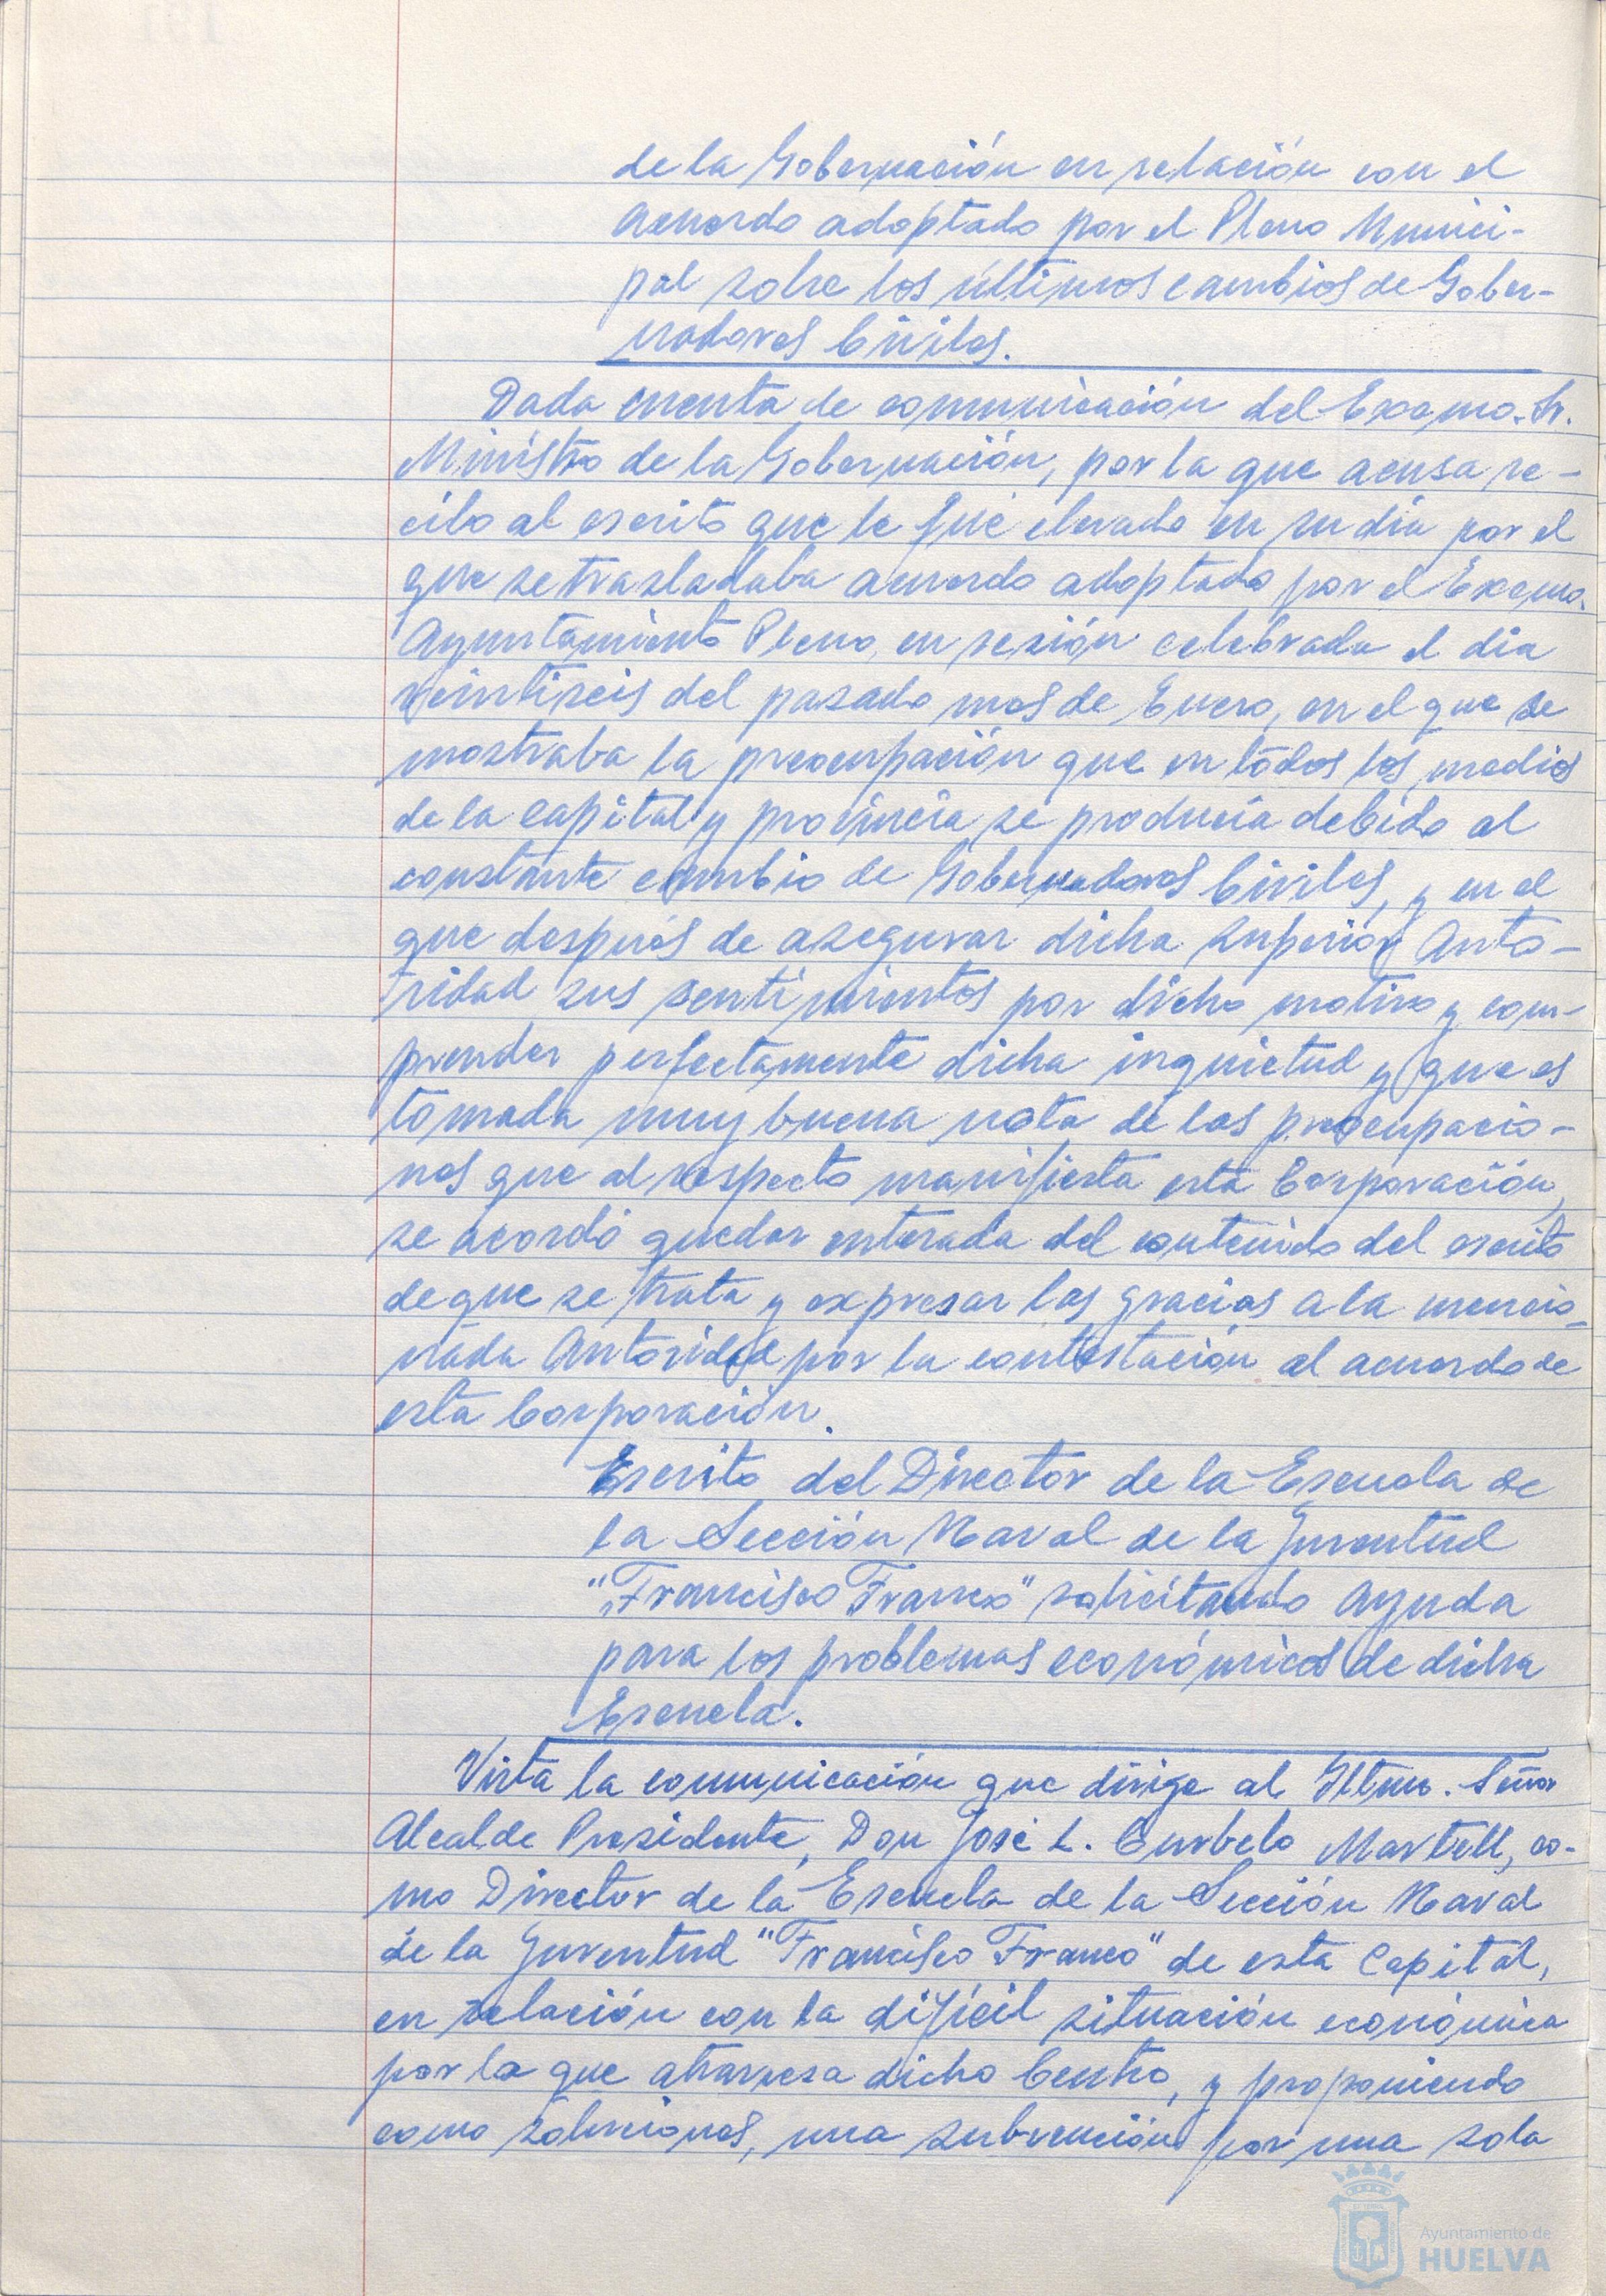 de la Gobernación en relación con el
acuerdo adoptado por el Pleno Munici-
pal sobre los últimos cambios de Gober-
nadores Civiles.
Dada cuenta de comunicación del Excmo. Sr.
Ministro de la Gobernación, por la que acusa re-
cibo al escrito que le fué elevado en su día por el
que se trasladaba acuerdo adoptado por el Excmo.
Ayuntamiento Pleno, en sesión celebrada el día
veintiseis del pasado mes de Enero, en el que se
mostraba la preocupación que en todos los medios
de la capital y provincia se producía debido al
constante cambio de Gobernadores Civiles, y en el
que después de asegurar dicha Superior Auto-
ridad sus sentimientos por dicho motivo y com-
prender perfectamente dicha inquietud y que es
tomada muy buena nota de las preocupacio-
nes que al respecto manifiesta esta Corporación,
se acordó quedar enterada del contenido del escrito
de que se trata y expresar las gracias a la mencio-
nada Autoridad por la contestación al acuerdo de
esta Corporación.
Escrito del Director de la Escuela de
la Sección Naval de la Juventud
"Francisco Franco" solicitando ayuda
para los problemas económicos de dicha
Escuela.
Vista la comunicación que dirige al Iltmo. Señor
Alcalde Presidente, Don José L. Curbelo Martell, co-
mo Director de la Escuela de la Sección Naval
de la Juventud "Francisco Franco" de esta Capital,
en relación con la difícil situación económica
por la que atraviesa dicho Centro, y proponiendo
como soluciones, una subvención por una sola
Ayuntamiento de
HUELVA